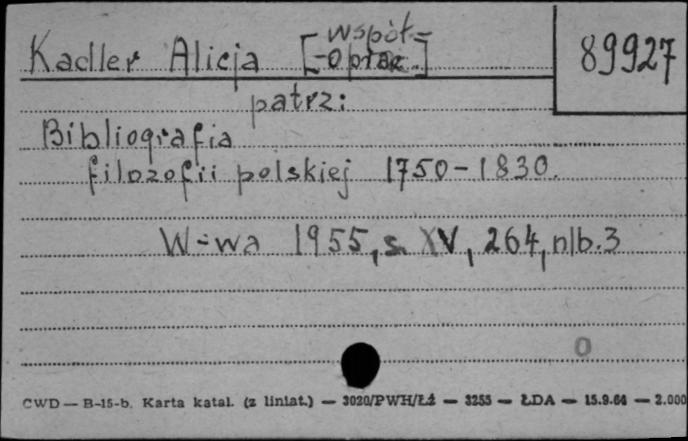 Kadler Alicja [współ-
-oprac.]
89927
patrz:
Bibliografia
filozofii polskiej 1750-1830.
W-wa 1955, s. XV, 264, nlb. 3
O
CWD — B-15-b. Karta katal. (z liniat.) — 3020/PWH/Łź — 3255 — ŁDA — 15.9.64 — 2.000